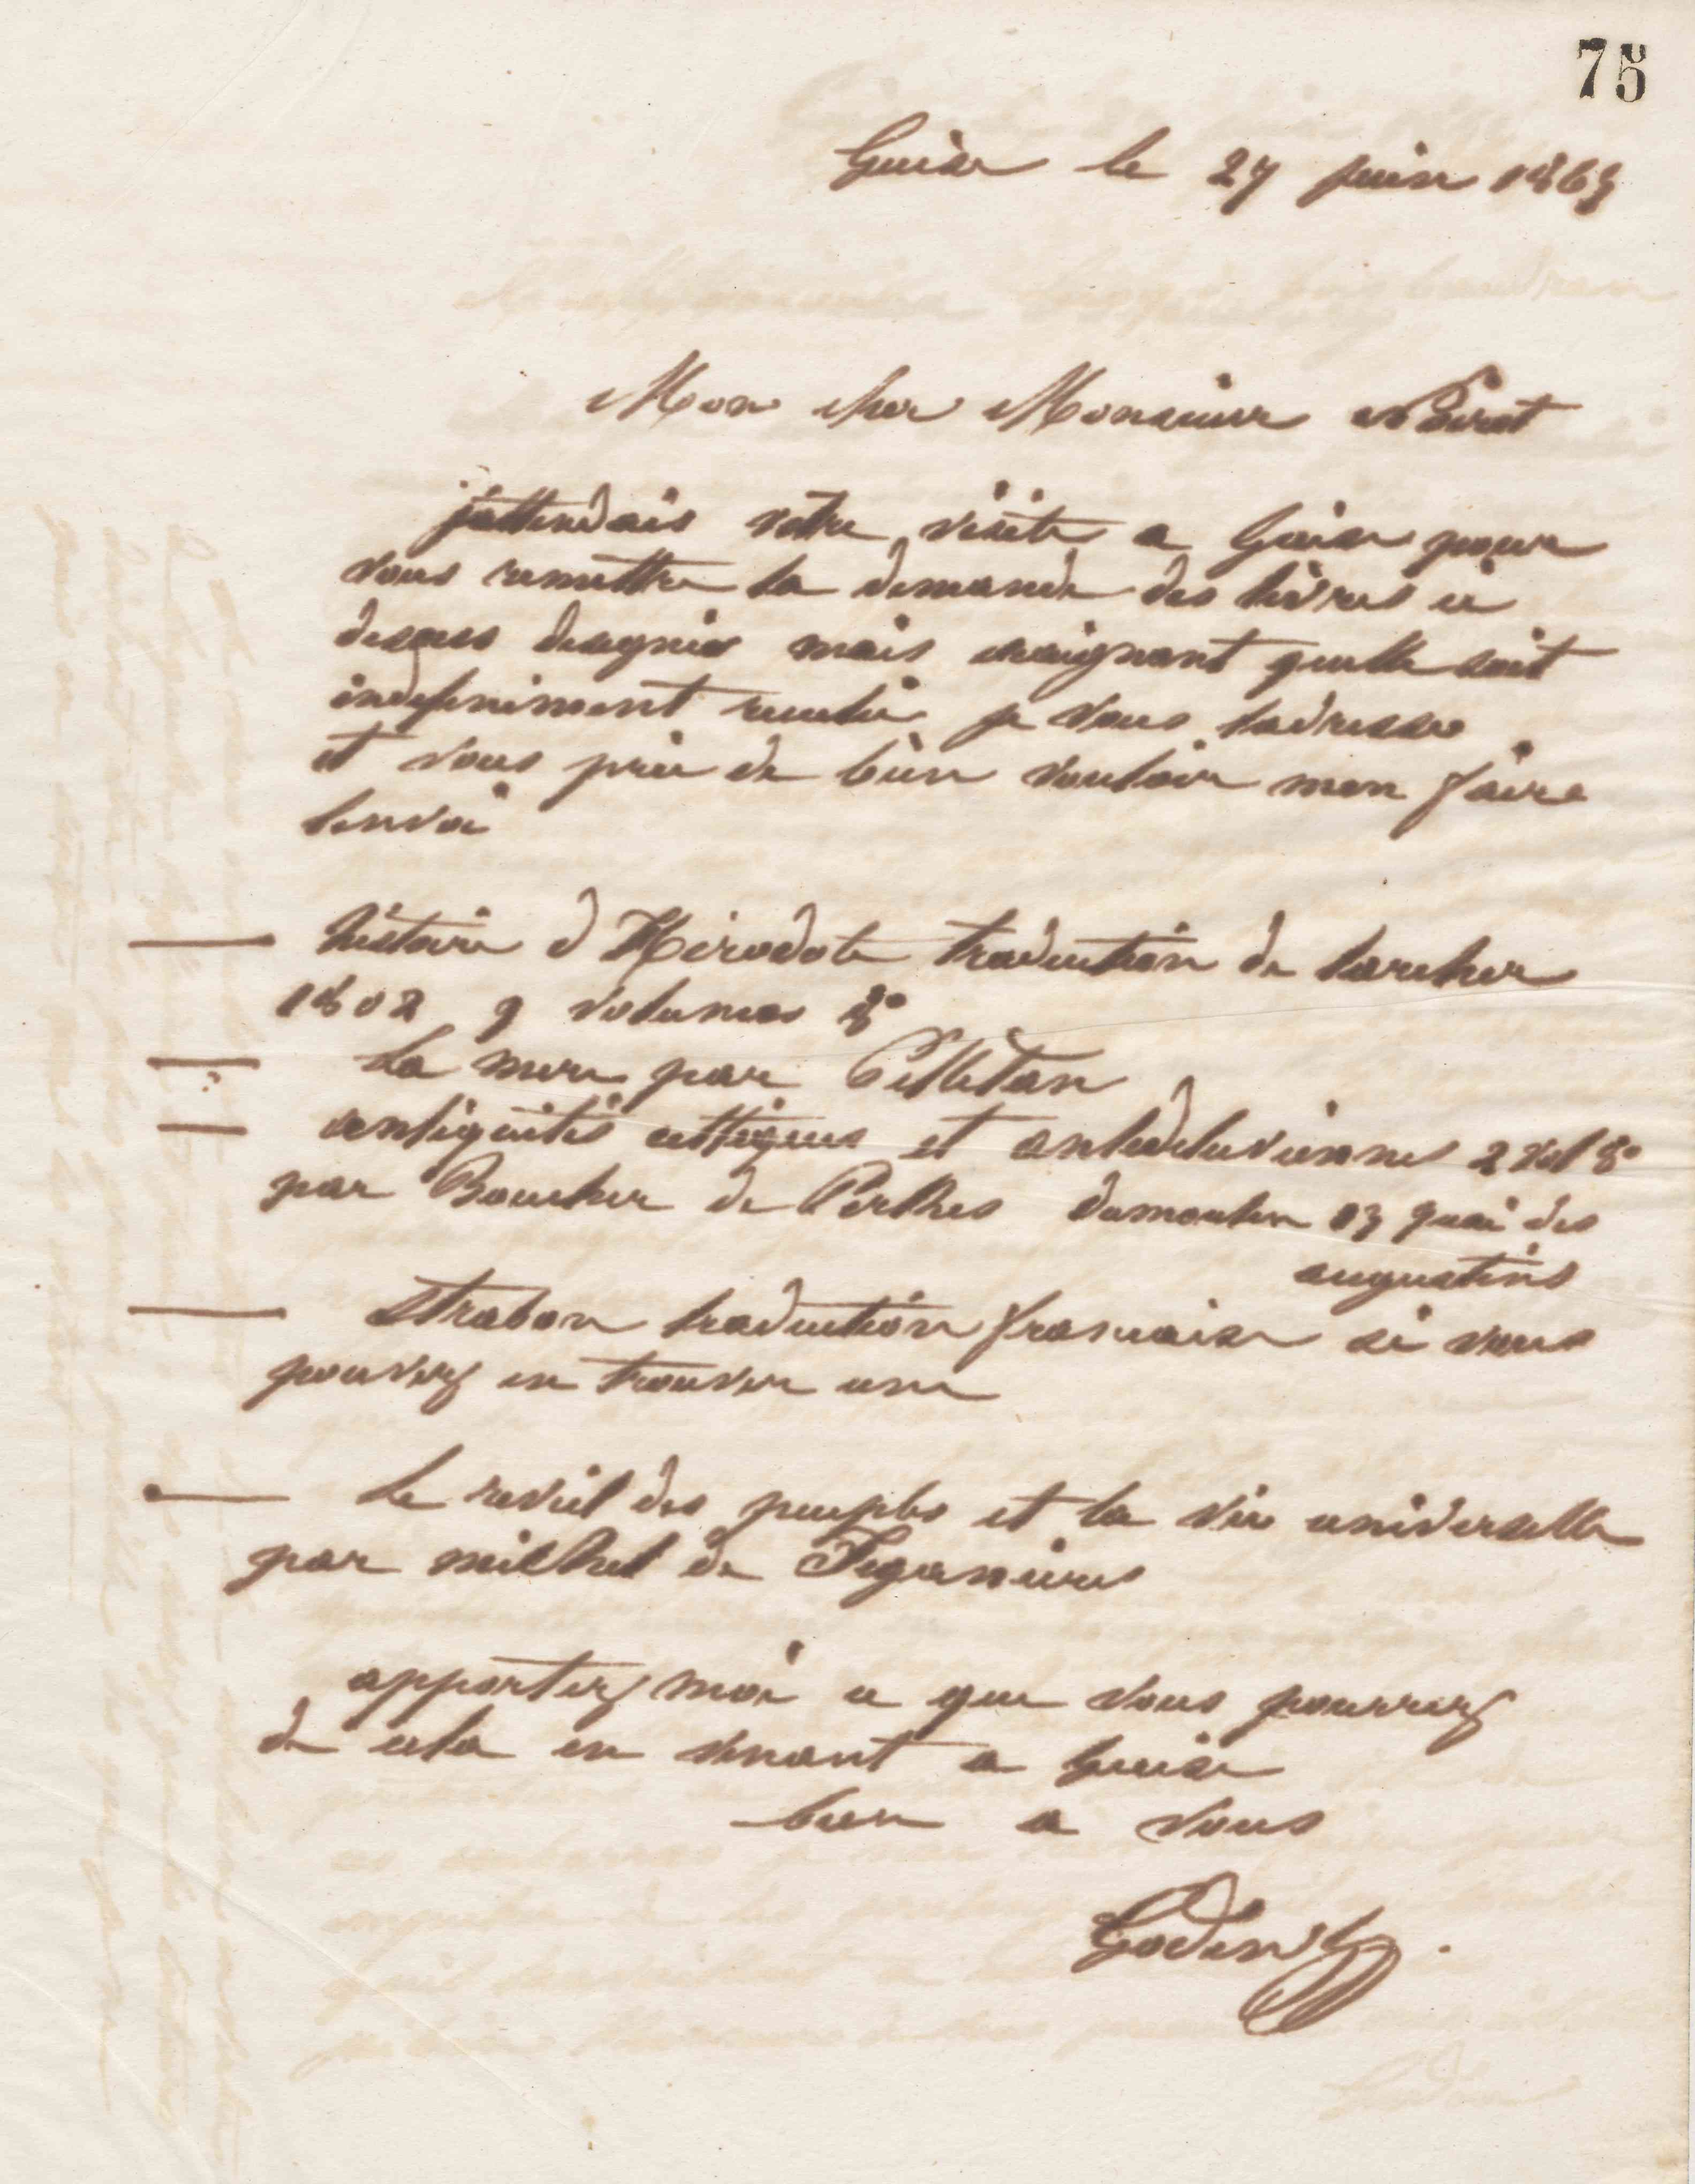 75
Guise le 27 juin 1863
Mon cher Monsieur
jattendais votre visite a Guise pour
vous remettre la demande des livres ci
dessous designés mais craignant quelle soit
indefiniment reculée je vous ladresse
et vous prie de bien vouloir men faire
lenvoi
histoire d Hérodote traduction de larcher
1802 9 volumes 8º
La mere par Pelletan
antiquités celtiques et antediluviennes 2 vol 8º
par Boucher de Perthes dumoulin 13 quai des
augustins
Strabon traduction francaise si vous
pouvez en trouver une
Le reveil des peuples et la vie universelle
par michel de Figanieres
apportez moi ce que vous pourrez
de cela en venant a Guise
bien a vous
Godin